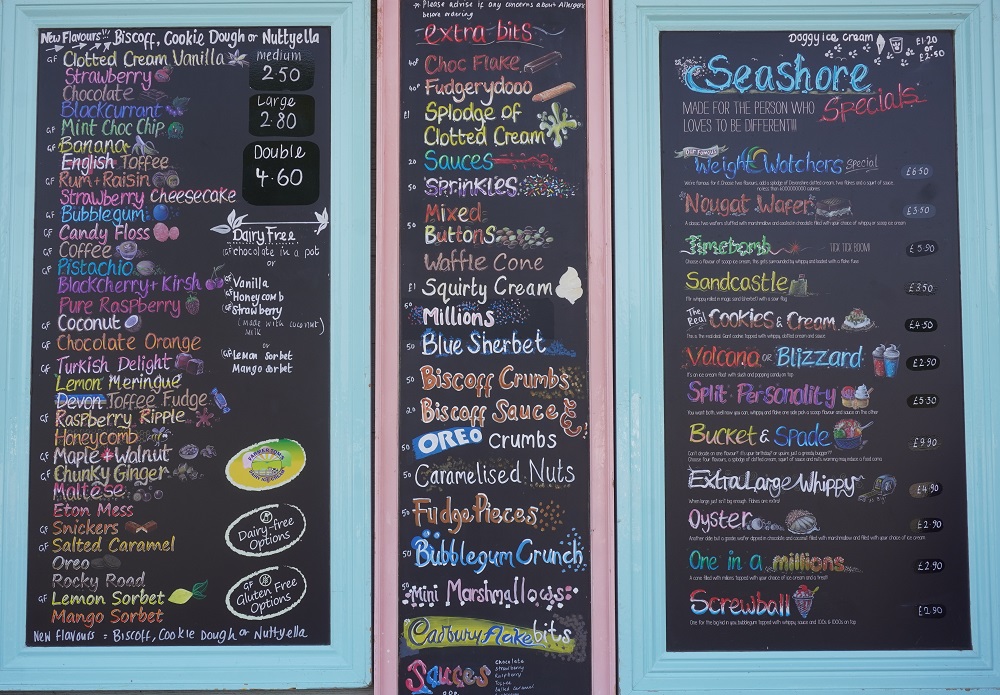 New Flavours!!! Biscoff, Cookie Dough or Nuttyella
GF Clotted Cream Vanilla
Strawberry
Chocolate
Blackcurrant
GF Mint Choc Chip
GF Banana
English Toffee
GF Rum + Raisin
Strawberry Cheesecake
GF Bubblegum
GF Candy Floss
GF Coffee
GF Pistachio
Blackcherry + Kirsh
Pure Raspberry
GF Coconut
GF Chocolate Orange
GF Turkish Delight
Lemon Meringue
Devon Toffee Fudge
GF Raspberry Ripple
Honeycomb
GF Maple + Walnut
GF Chunky Ginger
Maltese
Eton Mess
GF Snickers
GF Salted Caramel
Oreo
Rocky Road
GF Lemon Sorbet
Mango Sorbet
New Flavours = Biscoff, Cookie Dough or Nuttyella
medium
2.50
Large
2.80
Double
4.60
Dairy Free
GF chocolate in a pot
or
GF Vanilla
GF Honeycomb
GF Strawberry
(made with coconut)
milk
or
GF Lemon Sorbet
Mango Sorbet
Dairy-free
Options
GF
Gluten Free
Options
* Please advise if any concerns about Allergens
before ordering
extra bits
Choc Flake
Fudgerydooo
£1 Splodge of
Clotted Cream
20 Sauces
50 Sprinkles
50 Mixed
Buttons
Waffle Cone
£1 Squirty Cream
50 Millions
50 Blue Sherbet
50 Biscoff Crumbs
20 Biscoff Sauce
50 OREO crumbs
50 Caramelised Nuts
50 Fudge Pieces
50 Bubblegum Crunch
50 Mini Marshmallows
Cadbury flake bits
Sauces
Chocolate
Strawberry
Raspberry
Toffee
Salted Caramel
Doggy ice cream £1.20
or
£2.50
Seashore
Specials
MADE FOR THE PERSON WHO
LOVES TO BE DIFFERENT!!!
Our Famous
Weight Watchers special £6.50
Nougat Wafer £3.50
Timebomb TICK TICK BOOM! £5.90
Sandcastle £3.50
The Real Cookies & Cream £4.50
Volcano or Blizzard £2.90
Split Personality £5.30
Bucket & Spade £9.90
Extra Large Whippy £4.90
Oyster £2.90
One in a millions £2.90
Screwball £2.90